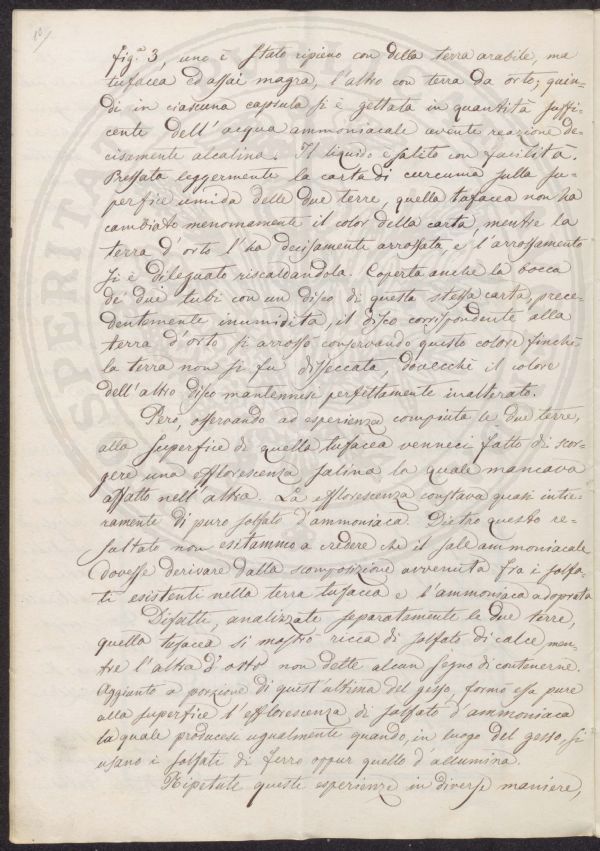 10/
fig.ª 3, uno è stato ripieno con della terra arabile, ma
tufacea ed assai magra, l'altro con terra da orto; quin-
di in ciascuna capsula si è gettata in quantità suffi-
cente dell'acqua ammoniacale avente reazione de-
cisamente alcalina. Il liquido è salito con facilità.
Passata leggermente la carta di curcuma sulla su-
perfice umida delle due terre, quella tufacea non ha
cambiato menomamente il color della carta, mentre la
terra d'orto l'ha decisamente arrossata, e l'arrossamento
si è dileguato riscaldandola. Coperta anche la bocca
de' due tubi con un disco di questa stessa carta, prece-
dentemente inumidita, il disco corrispondente alla
terra d'orto si arrossò conservando questo colore finchè
la terra non si fu disseccata, dovecchè il colore
dell'altro disco mantennesi perfettamente inalterato.
Però, osservando ad esperienza compiuta le due terre,
alla superfice di quella tufacea venneci fatto di scor-
gere una efflorescenza salina la quale mancava
affatto nell'altra. La efflorescenza constava quasi intie-
ramente di puro solfato d'ammoniaca. Dietro questo re-
sultato non esitammo a credere che il sale ammoniacale
dovesse derivare dalla scomposizione avvenuta fra i solfa-
ti esistenti nella terra tufacea e l'ammoniaca adoprata
Difatti, analizzate separatamente le due terre,
quella tufacea si mostrò ricca di solfato di calce, men-
tre l'altra d'orto non dette alcun segno di contenerne.
Aggiunto a porzione di quest'ultima del gesso, formò essa pure
alla superfice l'efflorescenza di solfato d'ammoniaca
la quale producesi ugualmente quando, in luogo del gesso, si
usano i solfati di ferro oppur quello d'allumina.
Ripetute queste esperienze in diverse maniere,
SPERITAT